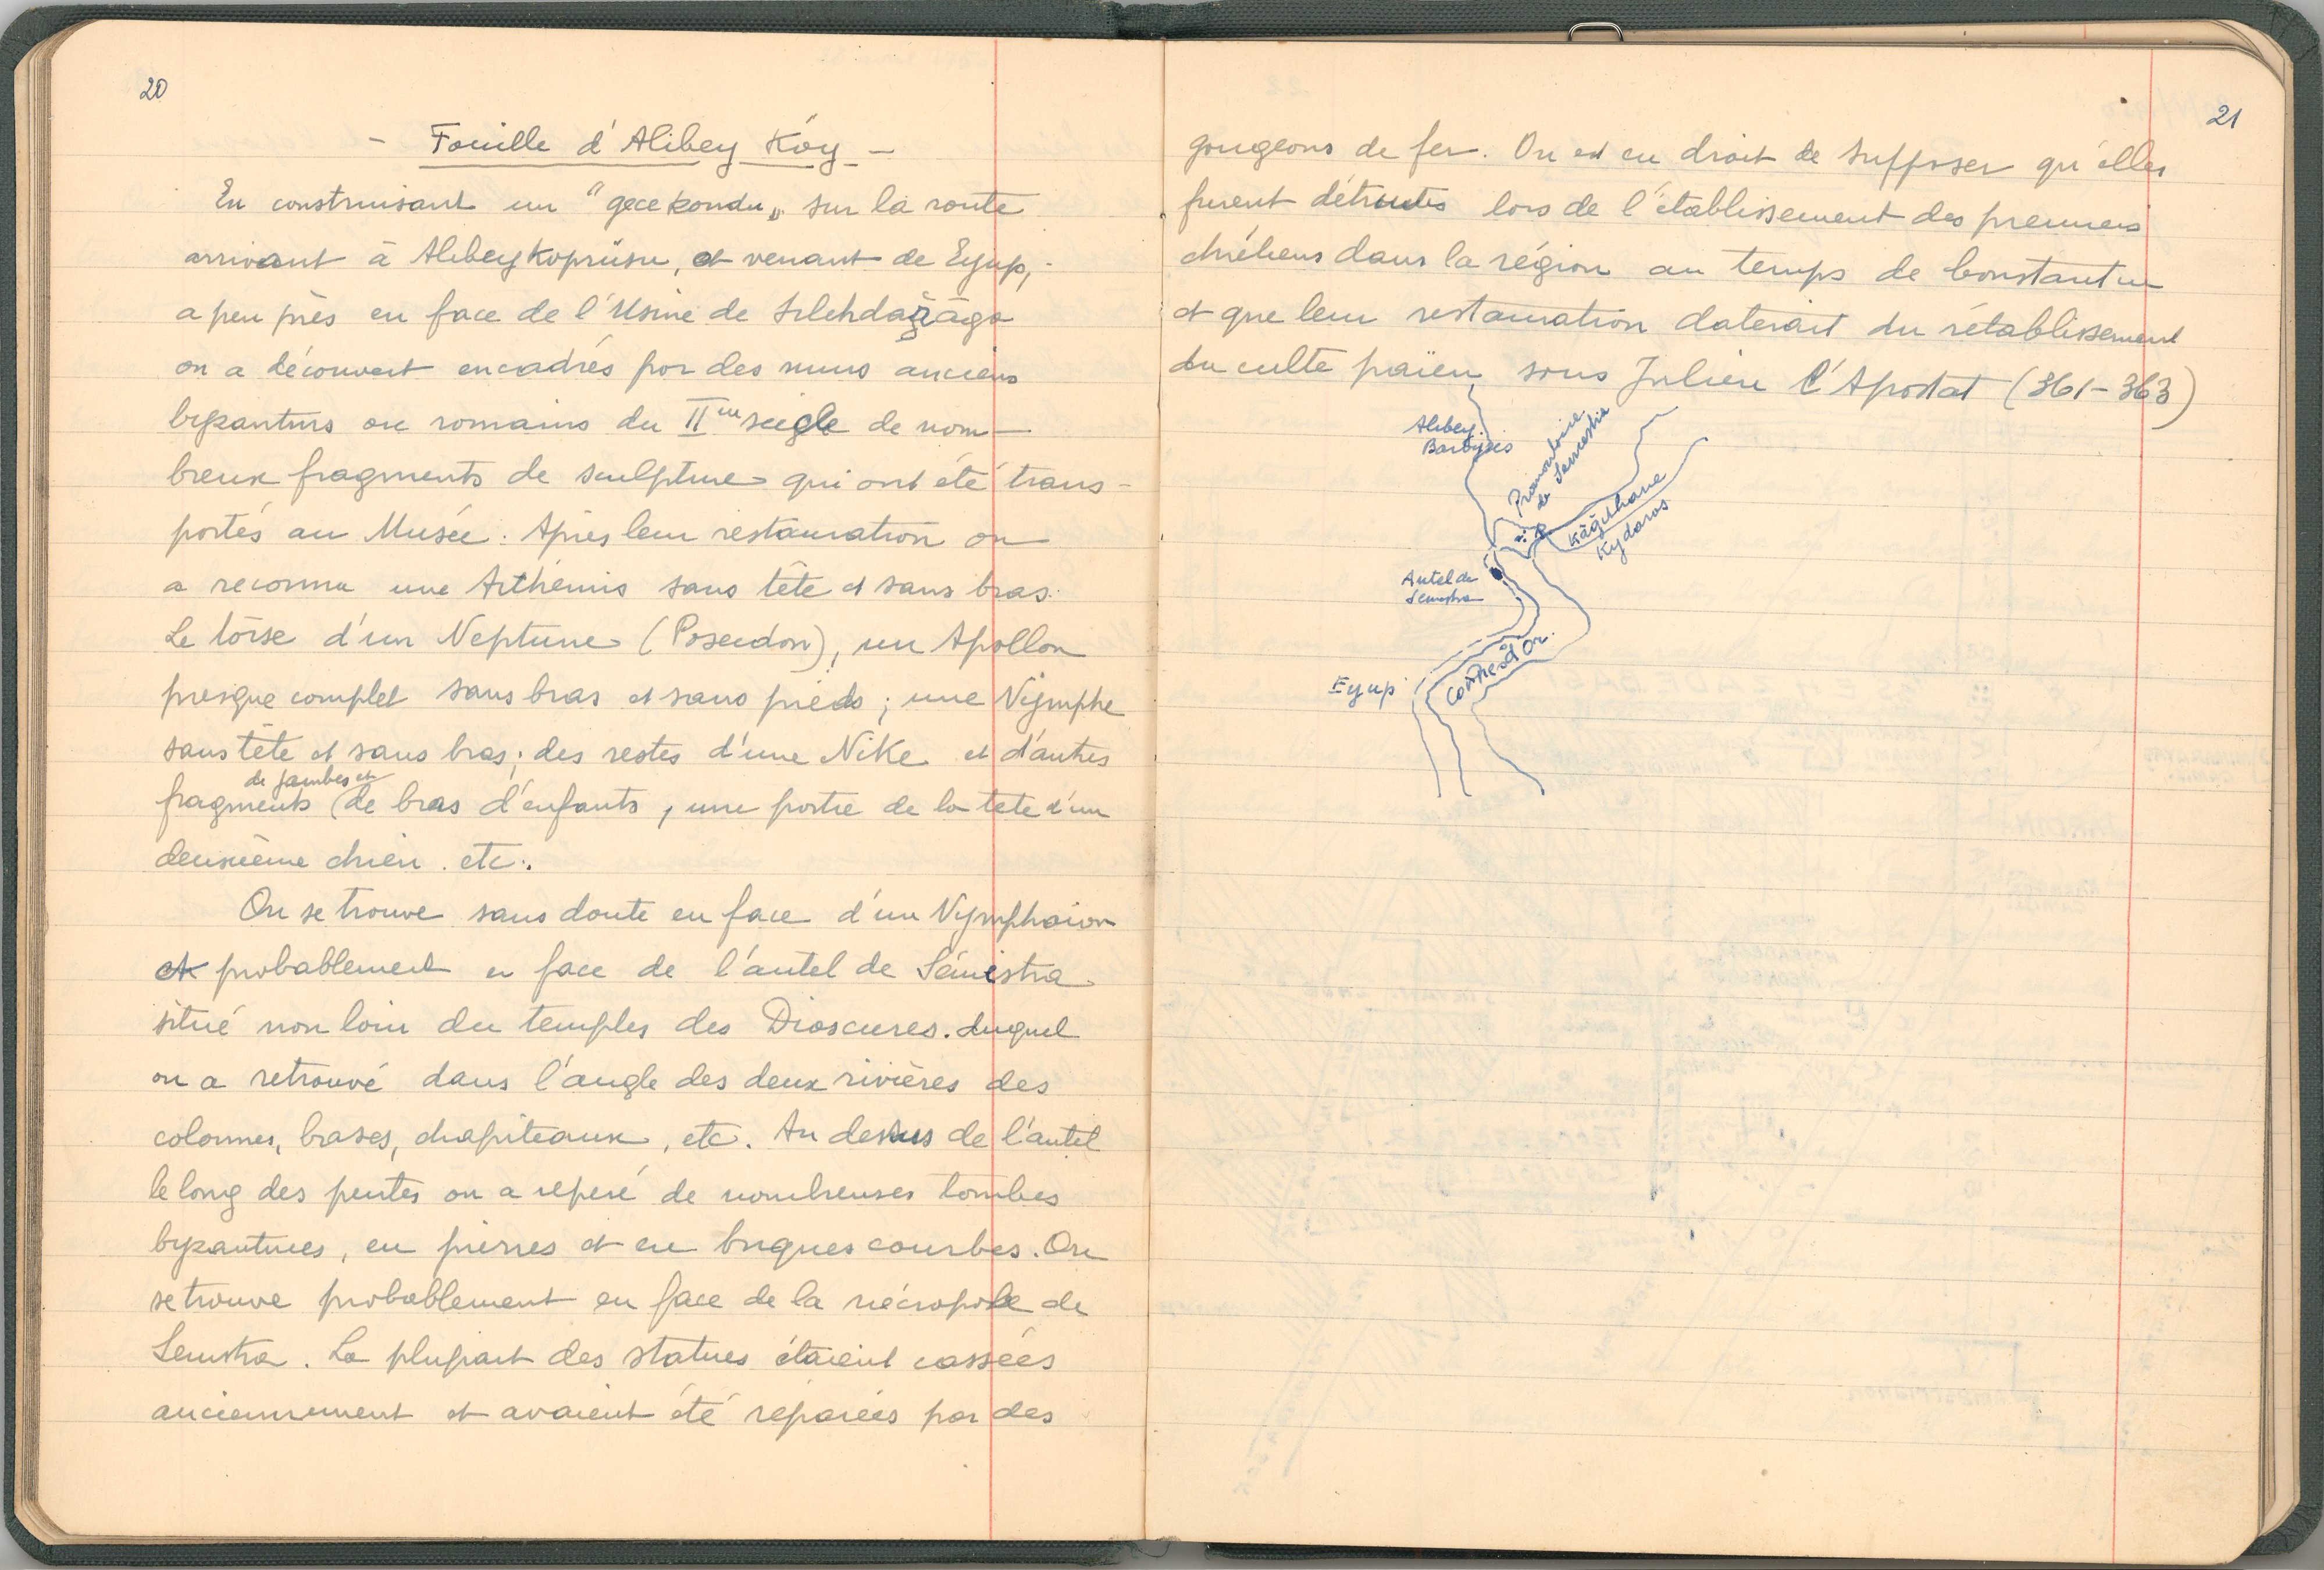 20
- Fouille d'Alibey Köy -
En construisant un "gecekondu" sur la route
arrivant à Alibeykoprüsu, et venant de Eyup,
a peu près en face de l'Usine de Silehdarağa
on a découvert encadrés par des murs anciens
byzantins ou romains du IIme siegle de nom-
breux fragments de sculpture qui ont été trans-
portés au Musée. Après leur restauration on
a reconnu une Arthémis sans tête et sans bras.
Le torse d'un Neptune (Poseidon), un Apollon
presque complet sans bras et sans pieds ; une Nymphe
sans tête et sans bras ; des restes d'une Nike et d'autres
de jambes et
fragments (de bras d'enfants, une partie de la tete d'un
deuxième chien. etc.
On se trouve sans doute en face d'un Nymphaion
et probablement en face de l'autel de Sémistra
situé non loin du temples des Dioscures. duquel
on a retrouvé dans l'angle des deux rivières des
colonnes, bases, chapiteaux, etc. Au dessus de l'autel
le long des pentes on a reperé de nombreuses tombes
byzantines, en pierres et en briques courbes. On
se trouve probablement en face de la nécropole de
Semistra. La plupart des statues étaient cassées
anciennement et avaient été réparées par des
21
gougeons de fer. On est en droit de supposer qu'elles
furent détruites lors de l'établissement des premiers
chrétiens dans la région au temps de Constantin
et que leur restauration daterait du rétablissement
du culte païen sous Julien l'Apostat (361-363)
Alibey.
Barbyses
Promontoire
de Semestria
Kâğıthane
Kydaros
Autel de
Semestra
Corne d'Or.
Eyup